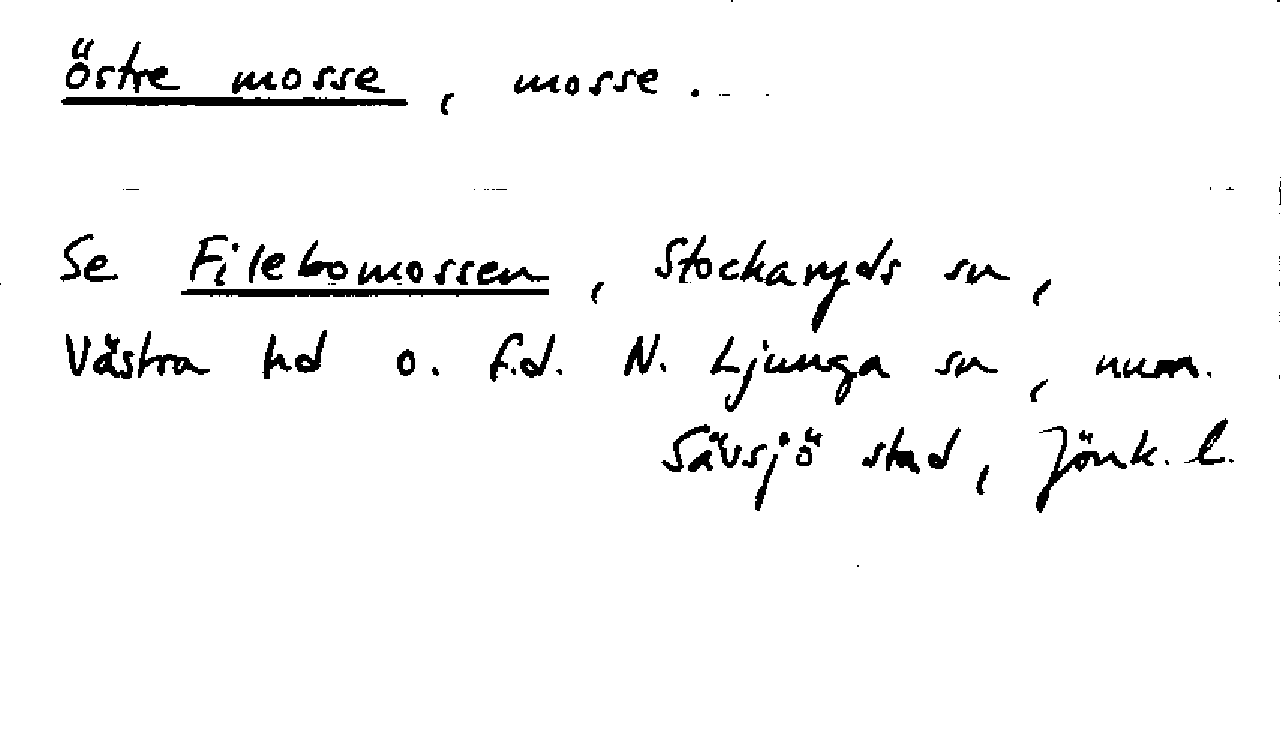 Östre mosse, mosse.
Se Filebomossen, Stockaryds sn,
Västra hd o. f.d. N. Ljunga sn, num.
Sävsjö stad, Jönk. l.